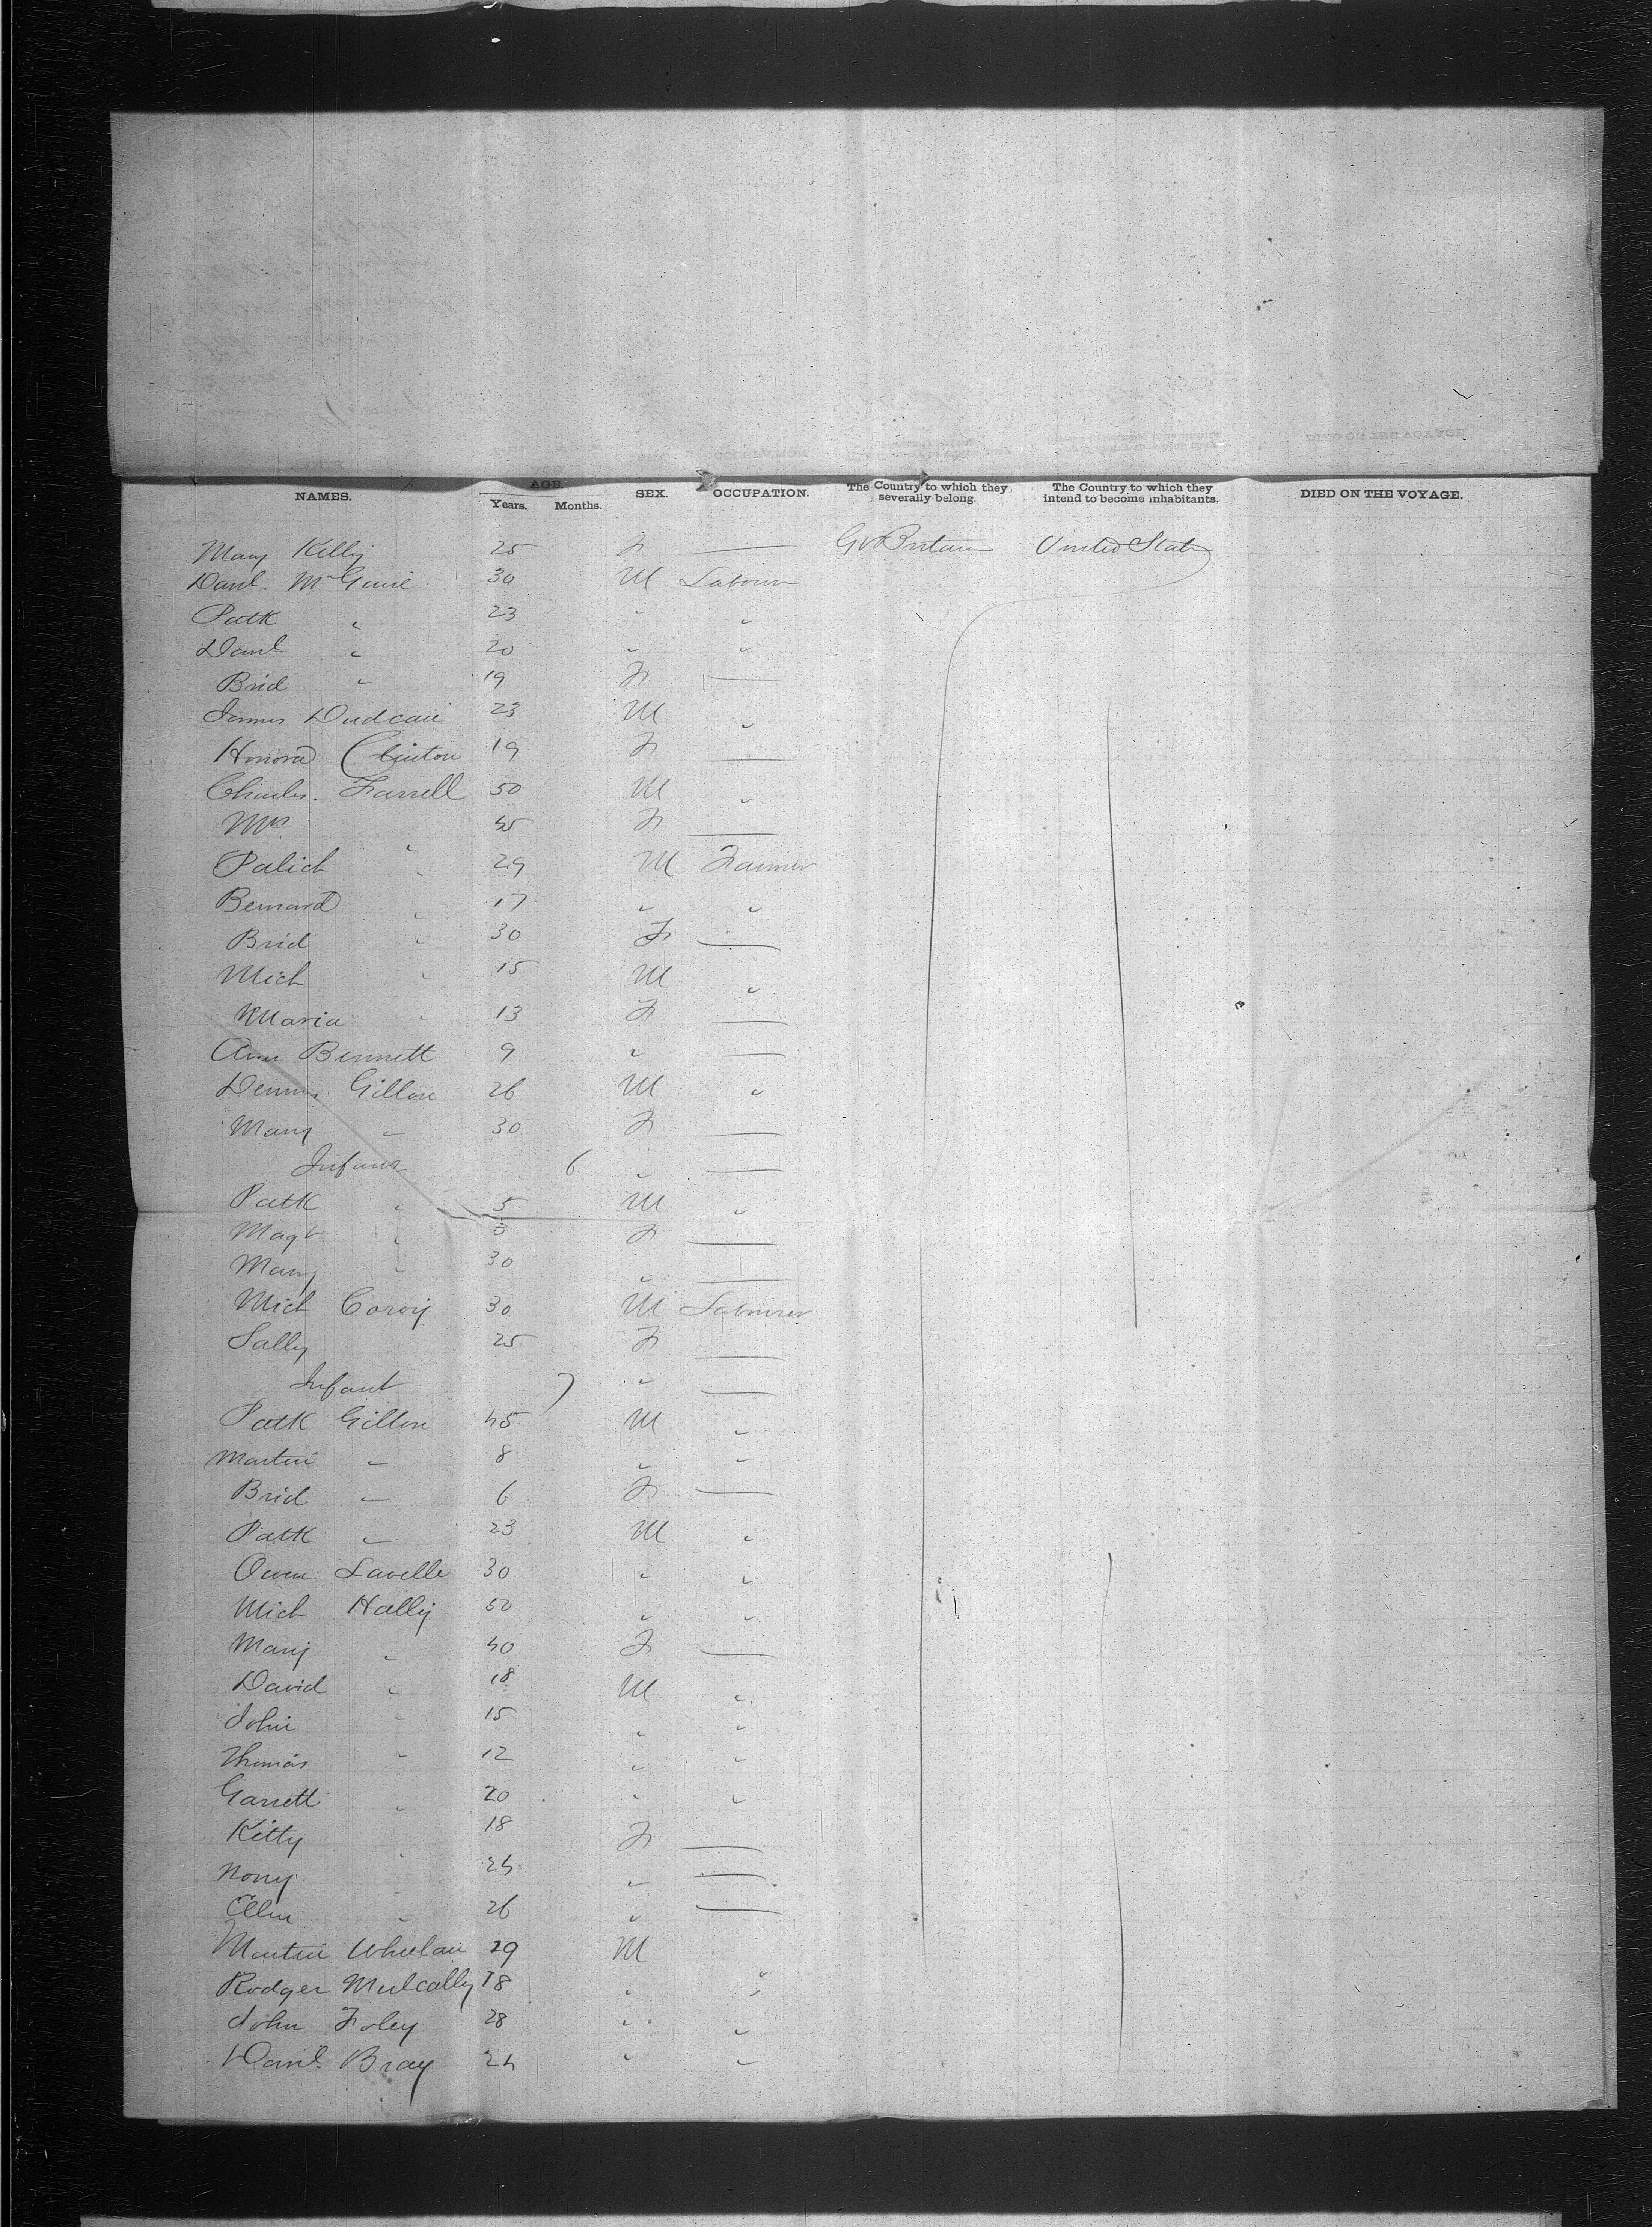 NAMES. AGE. Years. Months. SEX. OCCUPATION. The Country to which they severally belong. The Country to which they intend to become inhabitants. DIED ON THE VOYAGE.
Mary Killy 25 F — Gt Britain United States
Danl. McGuire 30 M Labour
Patk " 23 " "
Danl " 20 " "
Brid " 19 F —
James 23 M "
Honora Clinton 19 F —
Charles. Farrell 50 M "
Mrs " 45 F —
Patick " 29 M Farmer
Bernard " 17 " "
Brid " 30 F —
Mich " 15 M "
Maria " 13 F —
Ann Bennett 9 " —
Dennis Gillon 26 M "
Mary " 30 F —
Infant 6 " —
Patk " 5 M "
Magt " 3 F —
Mary " 30 " —
Mich 30 M Labourer
Sally 25 F —
Infant 7 " —
Patk Gillon 45 M "
Martin " 8 " "
Brid " 6 F —
Patk " 23 M "
Owen Lavelle 30 " "
Mich Hally 50 " "
Mary " 40 F —
David " 18 M "
John " 15 " "
Thomas " 12 " "
Garrett " 20 " "
Kitty 18 F —
Nony " 24 " —
Ellen " 26 " —
Martin Whelan 29 M "
Rodger Mulcally 18 " "
John Foley 28 " "
Danl. Bray 24 " "